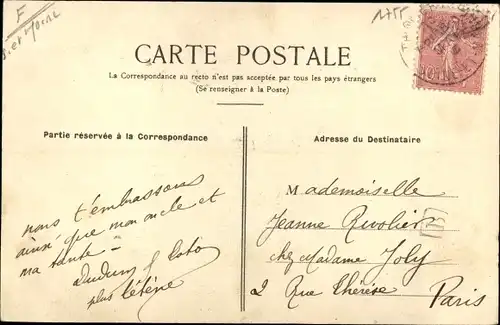 F
S. et Moral
1755
CARTE POSTALE
La Correspondance au recto n'est pas acceptée par tous les pays étrangers
(Se renseigner à la Poste)
Partie réservée à la Correspondance
Adresse du Destinataire
nous t'embrassons
ainsi que mon oncle et
ma tante –
plus
Mademoiselle
Jeanne Rivolier
chez Madame Joly
2 Rue Thérèse
Paris